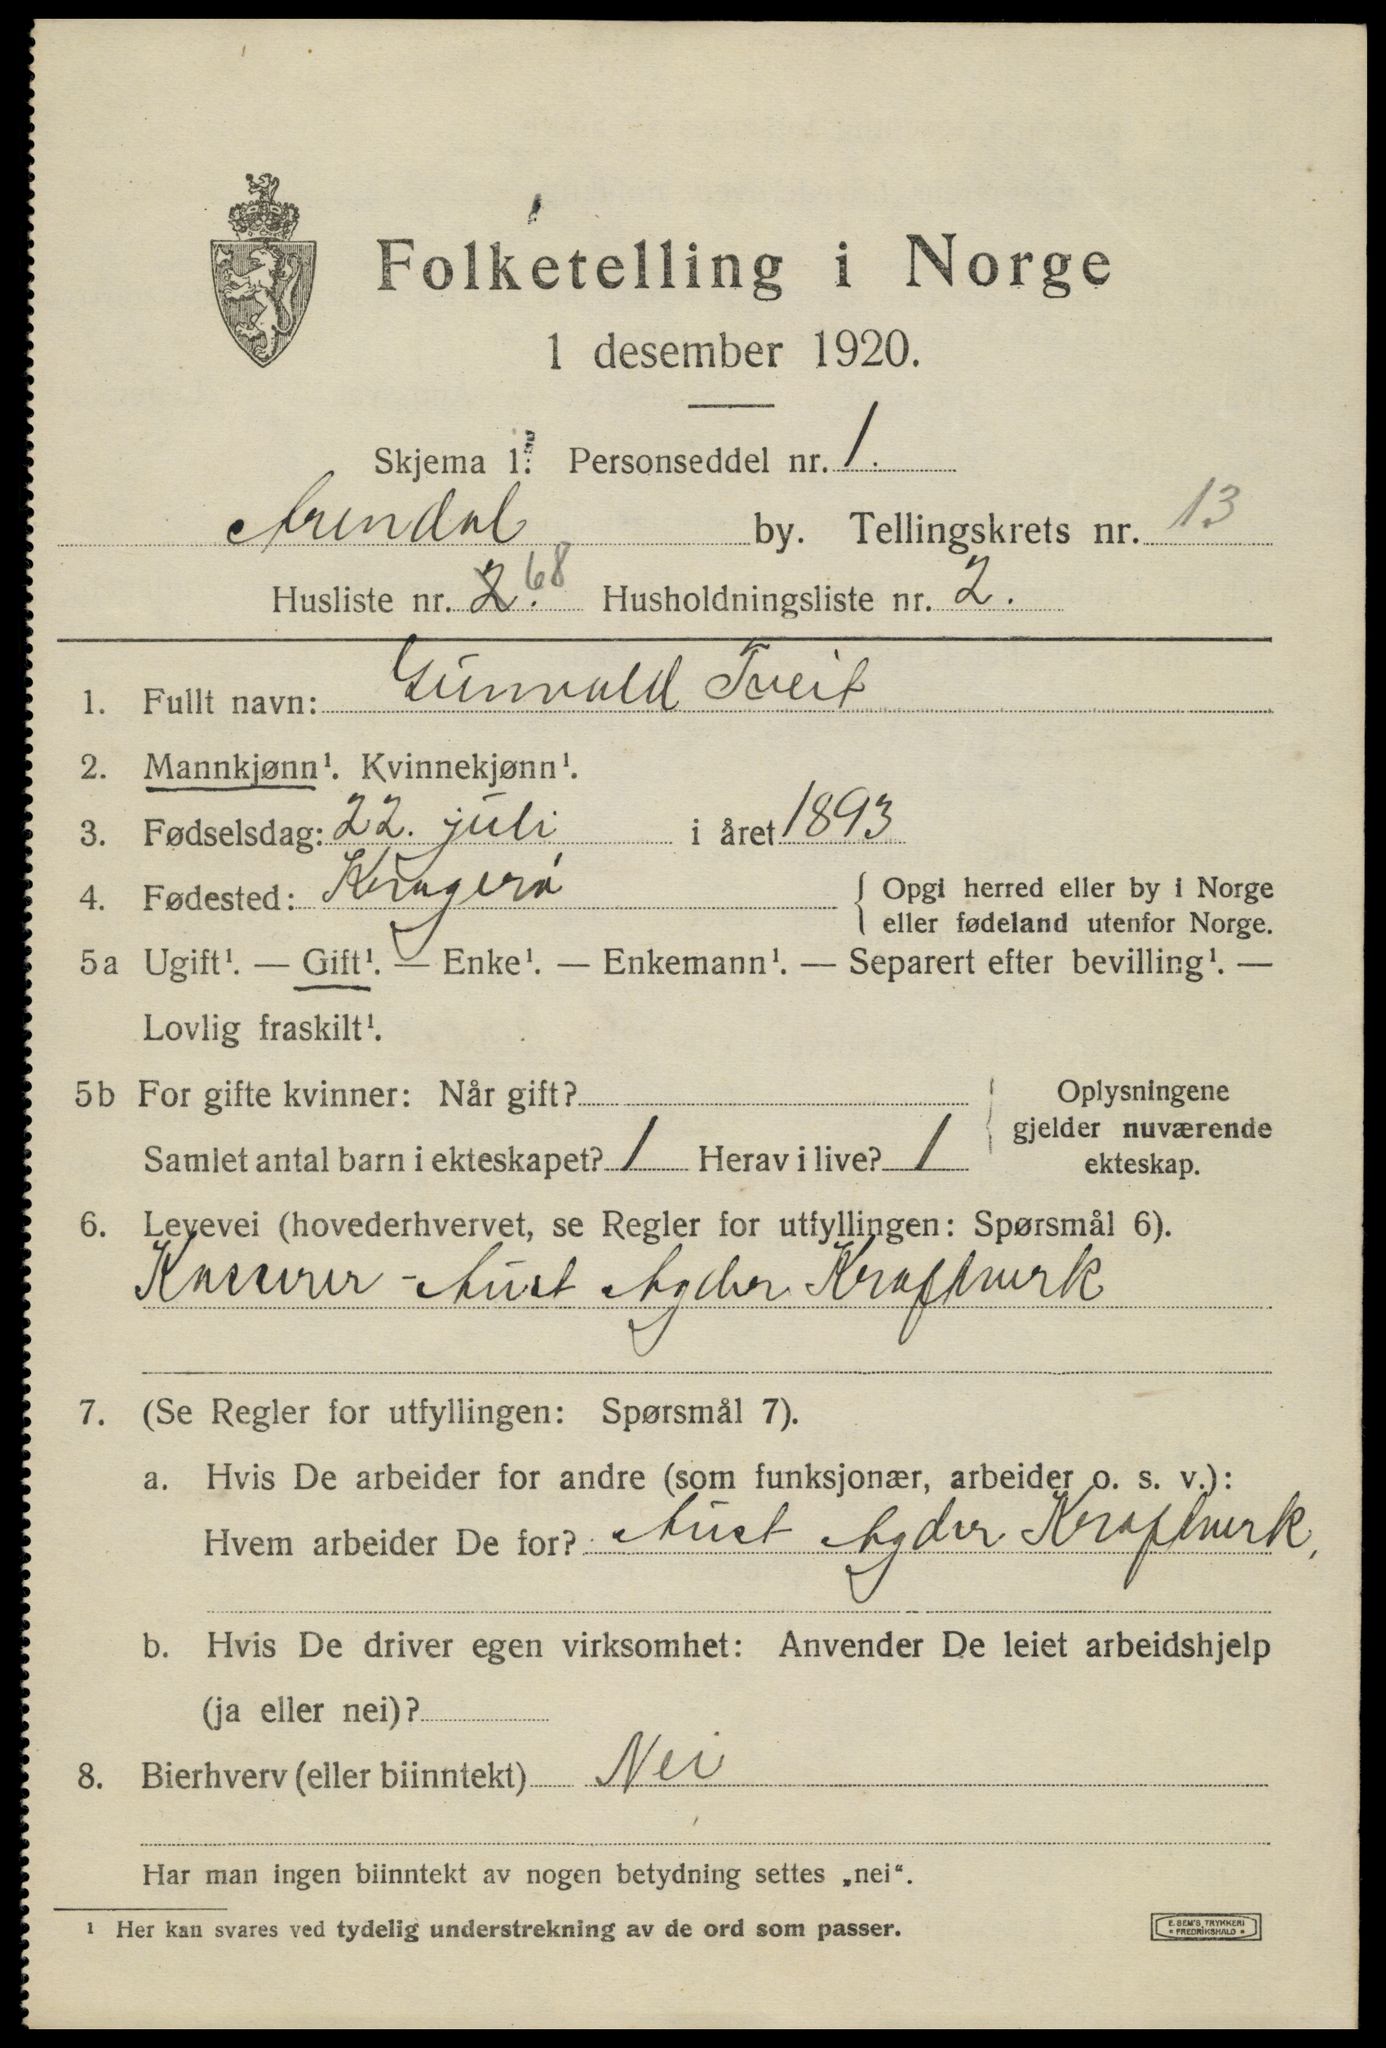 Folketelling i Norge
1 desember 1920.
Skjema 1. Personseddel nr. 1.
Arendal by. Tellingskrets nr. 13
Husliste nr. 2. 68 Husholdningsliste nr. 2.
1. Fullt navn: Gunvald Tveit
2. Mannkjønn¹. Kvinnekjønn¹.
3. Fødselsdag: 22. juli i året 1893
4. Fødested: Kragerø { Opgi herred eller by i Norge
eller fødeland utenfor Norge.
5a Ugift¹. — Gift¹. — Enke¹. — Enkemann¹. — Separert efter bevilling¹. —
Lovlig fraskilt¹.
5b For gifte kvinner: Når gift? { Oplysningene
gjelder nuværende
Samlet antal barn i ekteskapet? 1 Herav i live? 1 ekteskap.
6. Levevei (hovederhvervet, se Regler for utfyllingen: Spørsmål 6).
Kasserer - Aust Agder Kraftverk
7. (Se Regler for utfyllingen: Spørsmål 7).
a. Hvis De arbeider for andre (som funksjonær, arbeider o. s. v.):
Hvem arbeider De for? Aust Agder Kraftverk,
b. Hvis De driver egen virksomhet: Anvender De leiet arbeidshjelp
(ja eller nei)?
8. Bierhverv (eller biinntekt) Nei
Har man ingen biinntekt av nogen betydning settes „nei“.
¹ Her kan svares ved tydelig understrekning av de ord som passer.
E. SEM'S TRYKKERI
* FREDRIKSHALD *